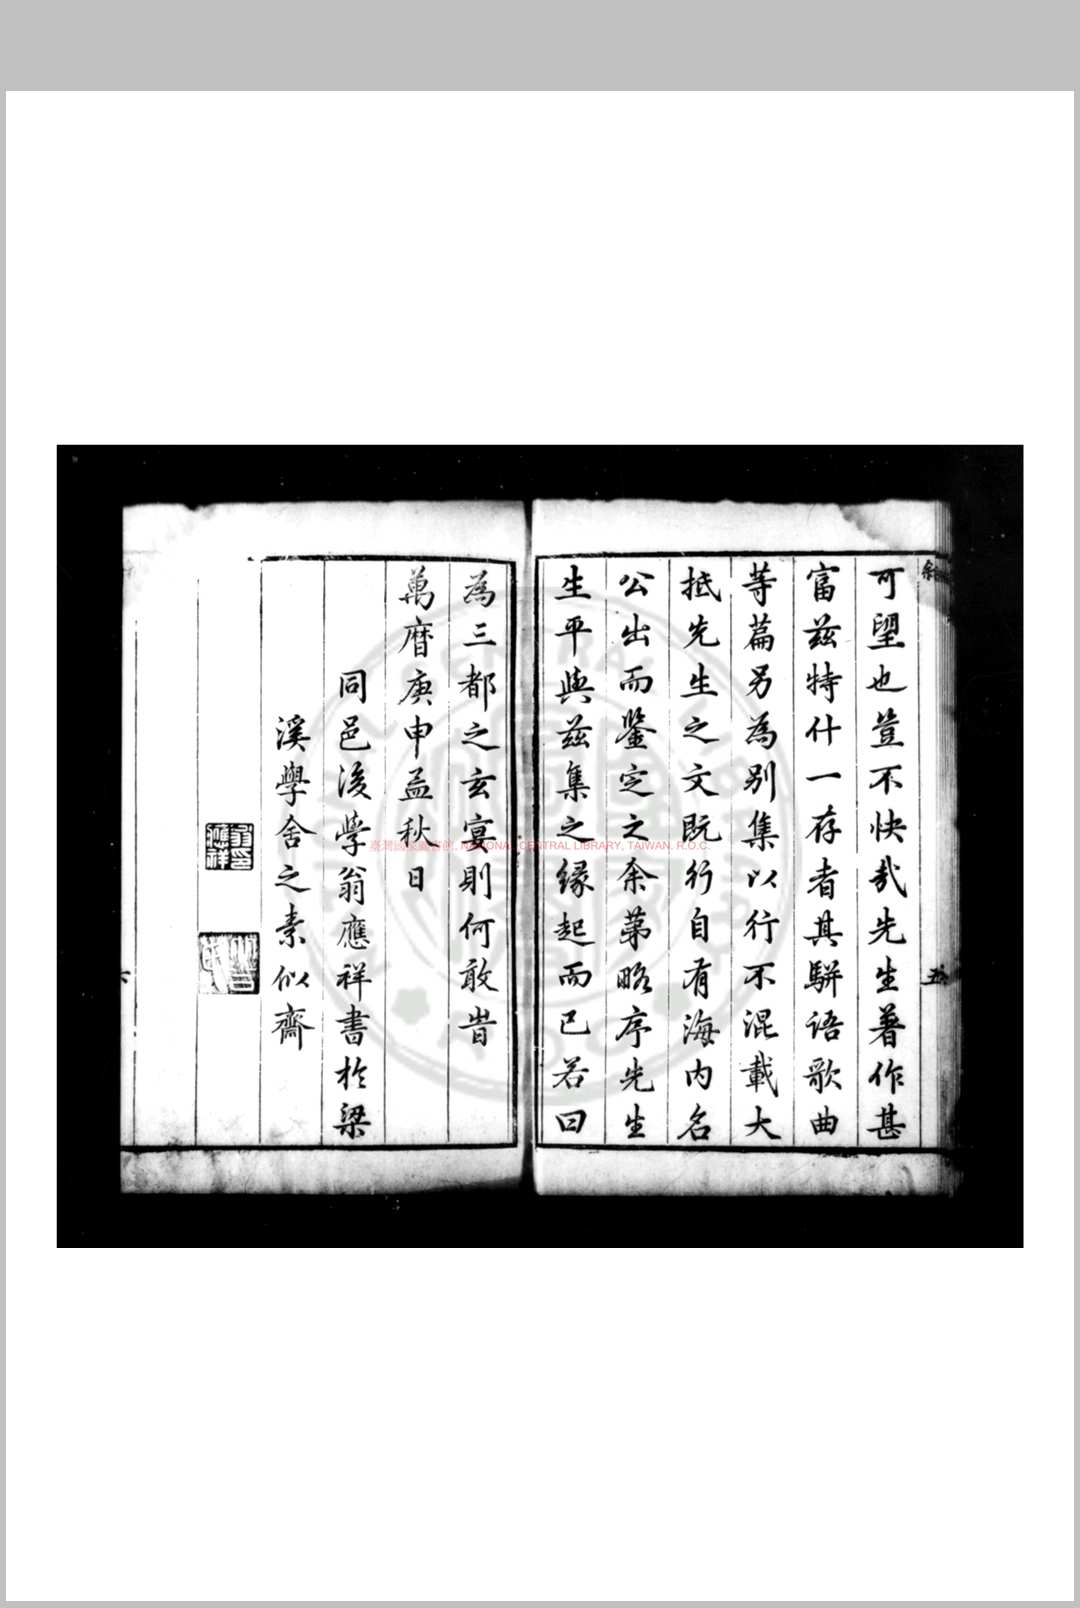 可望也豈不快哉先生著作甚
富茲特什一存者其駢語歌曲
等篇另為別集以行不混載大
抵先生之文既行自有海內名
公出而鑒定之余第略序先生
生平與茲集之緣起而已若曰
五
為三都之玄宴則何敢昔
萬曆庚申孟秋日
同邑後學翁應祥書於梁
溪學舍之素似齋
翁應祥印
臺灣國家圖書館, NATIONAL CENTRAL LIBRARY, TAIWAN, R.O.C.